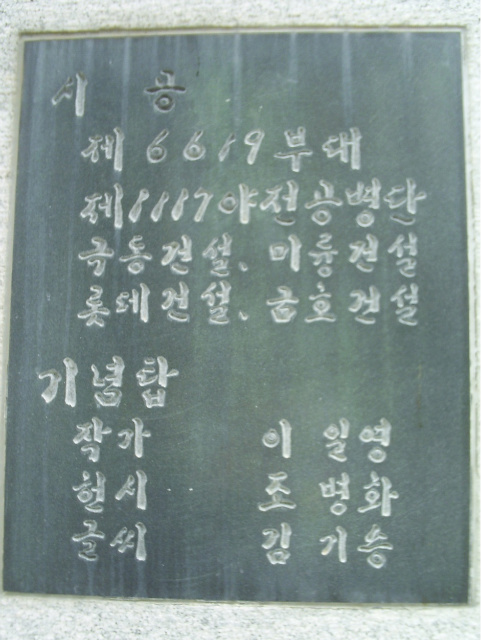 시 공
제6619부대
제1117야전공병단
극동건설. 미륭건설
롯데건설. 금호건설
기념탑
작가 이 일영
헌시 조 병화
글씨 김 기승